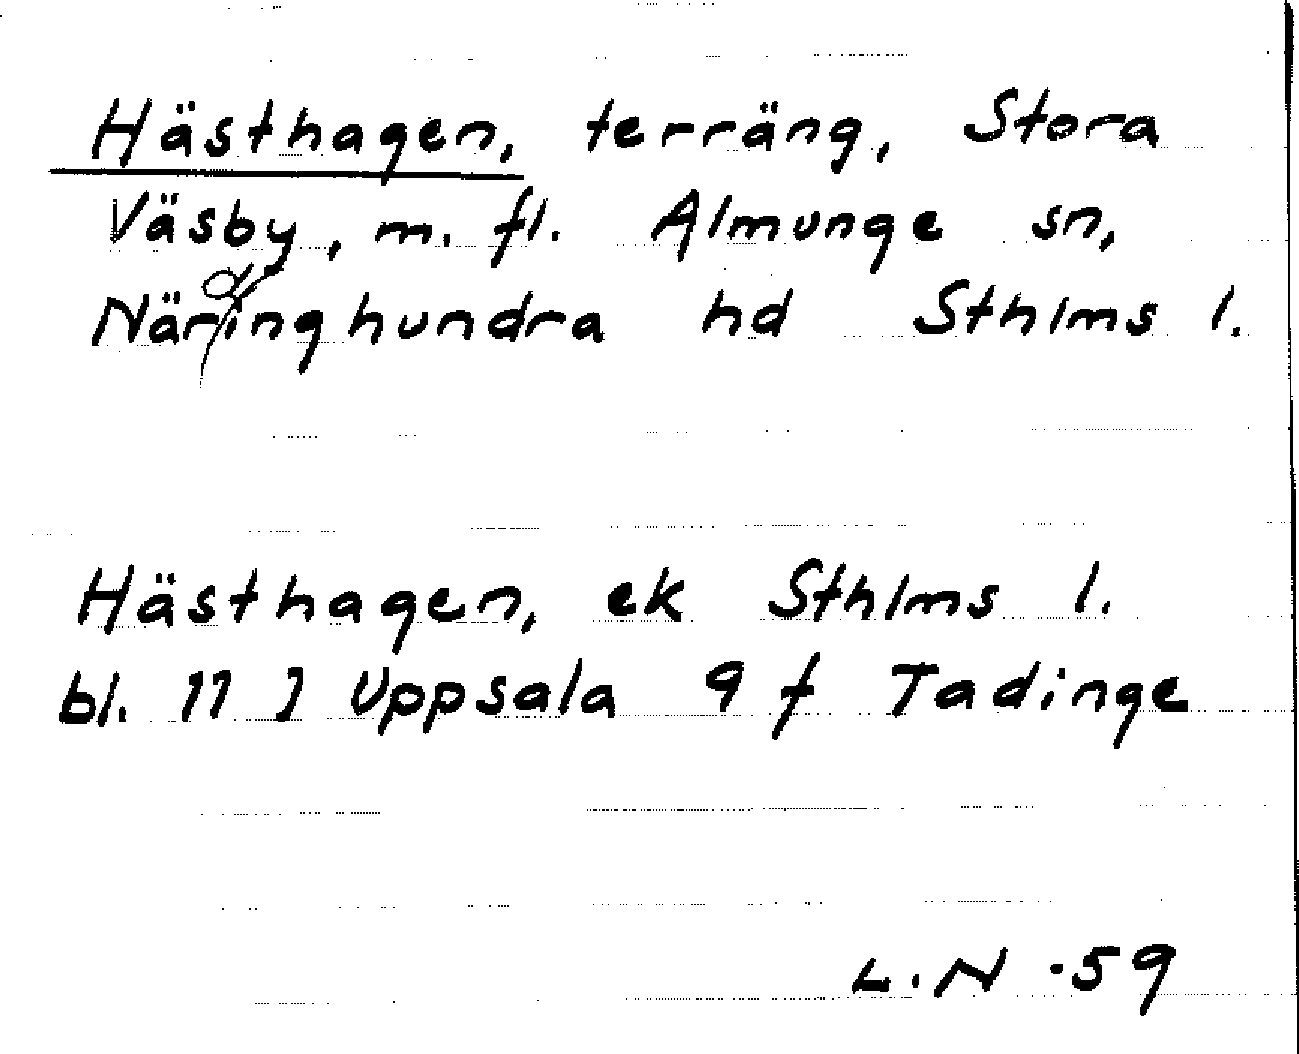 Hästhagen, terräng, Stora
Väsby, m. fl. Almunge sn,
Närdinghundra hd Sthlms l.
Hästhagen, ek Sthlms l.
bl. 11 J Uppsala 9 f Tadinge
L.N -59